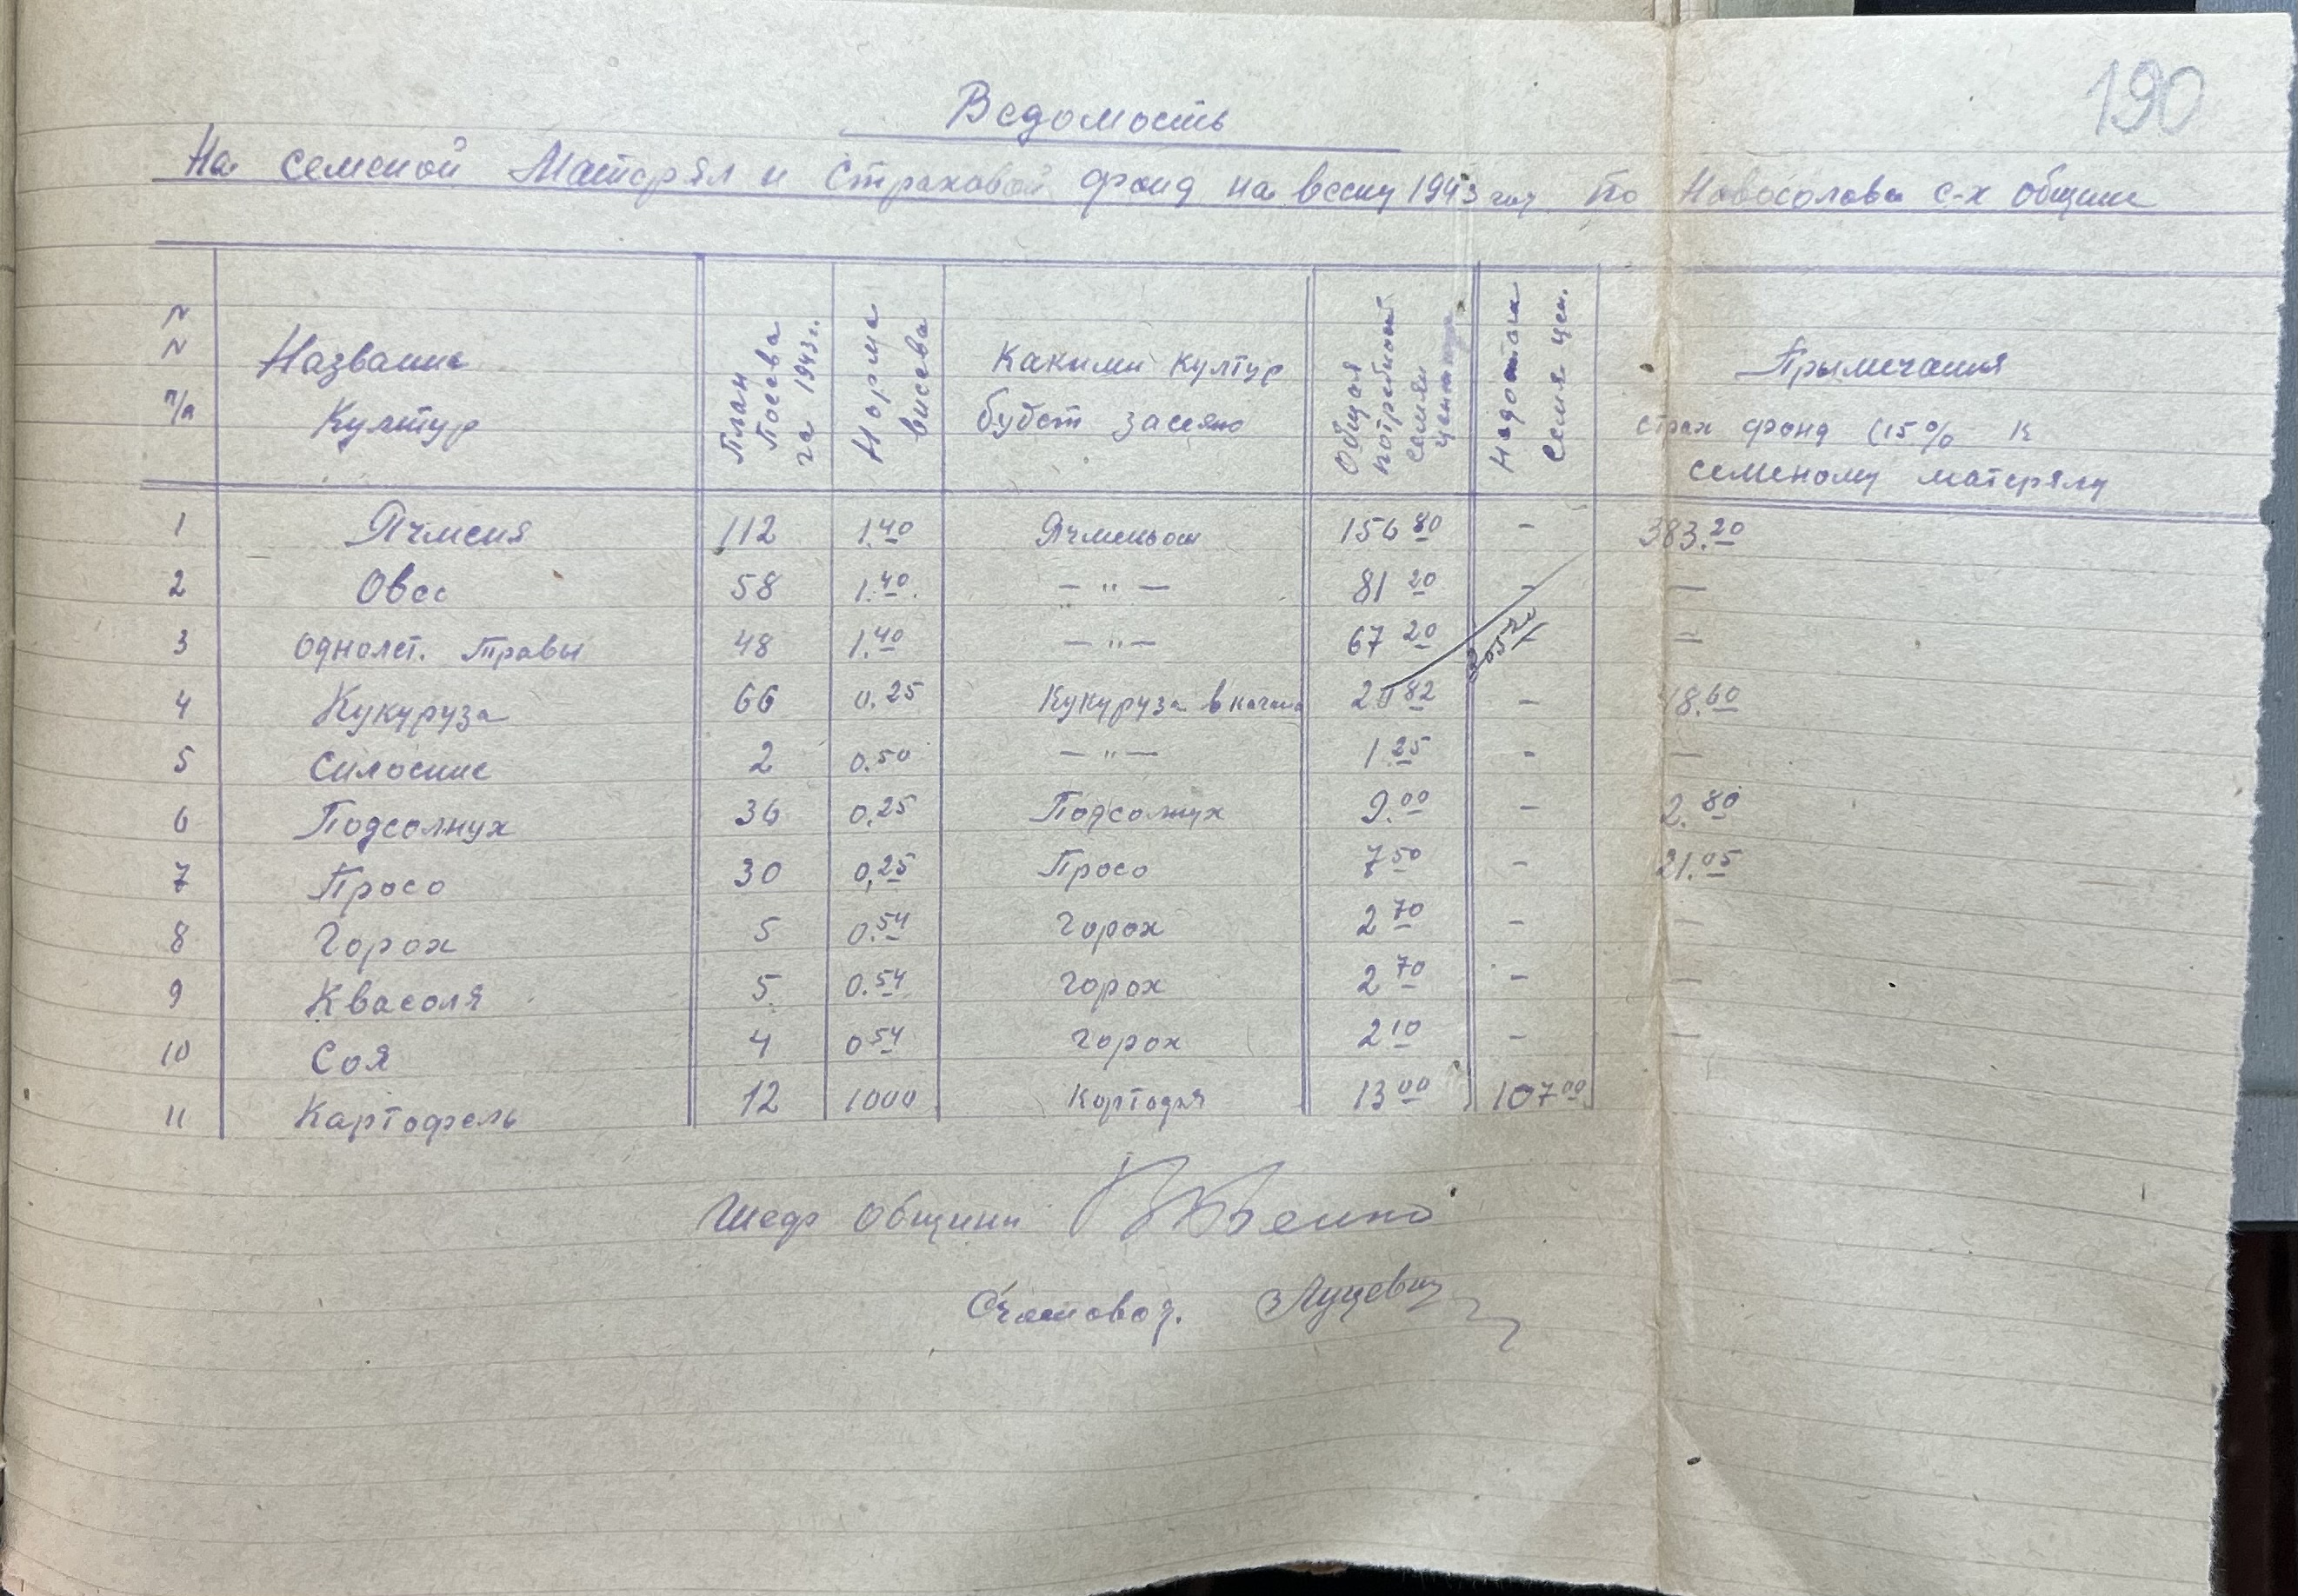 190
Ведомость
На семеной Матерял и Страховой фонд на весну 1943 году по Новоселовы с-х общине
N N п/п
Название Культур
План Посева на 1943 г.
Норма висева
Какими культур будет засеяно
Общая потребност семян
Недостача Семя цен.
Прымечания
страх фонд (15% к
семеному матерялу
1 Ячменя 112 1.40 Ячменьом 156 80 - 383.20
2 Овес 58 1.40 — " — 81 20 - —
3 Однолет. Травы 48 1.40 — " — 67 20 —
4 Кукуруза 66 0.25 Кукуруза в качана 82 - 48.60
5 Силосние 2 0.50 — " — 1.25 - —
6 Подсолнух 36 0.25 Подсолнух 9.00 - 2.80
7 Просо 30 0,25 Просо 7 50 - 21.05
8 Горох 5 0.54 Горох 2 70 - —
9 Квасоля 5 0.54 горох 2 70 - —
10 Соя 4 0 54 горох 2 10 - —
11 Картофель 12 1000 Картофля 13 00 107 00
Шеф Общини
Счетовод. Луцевич